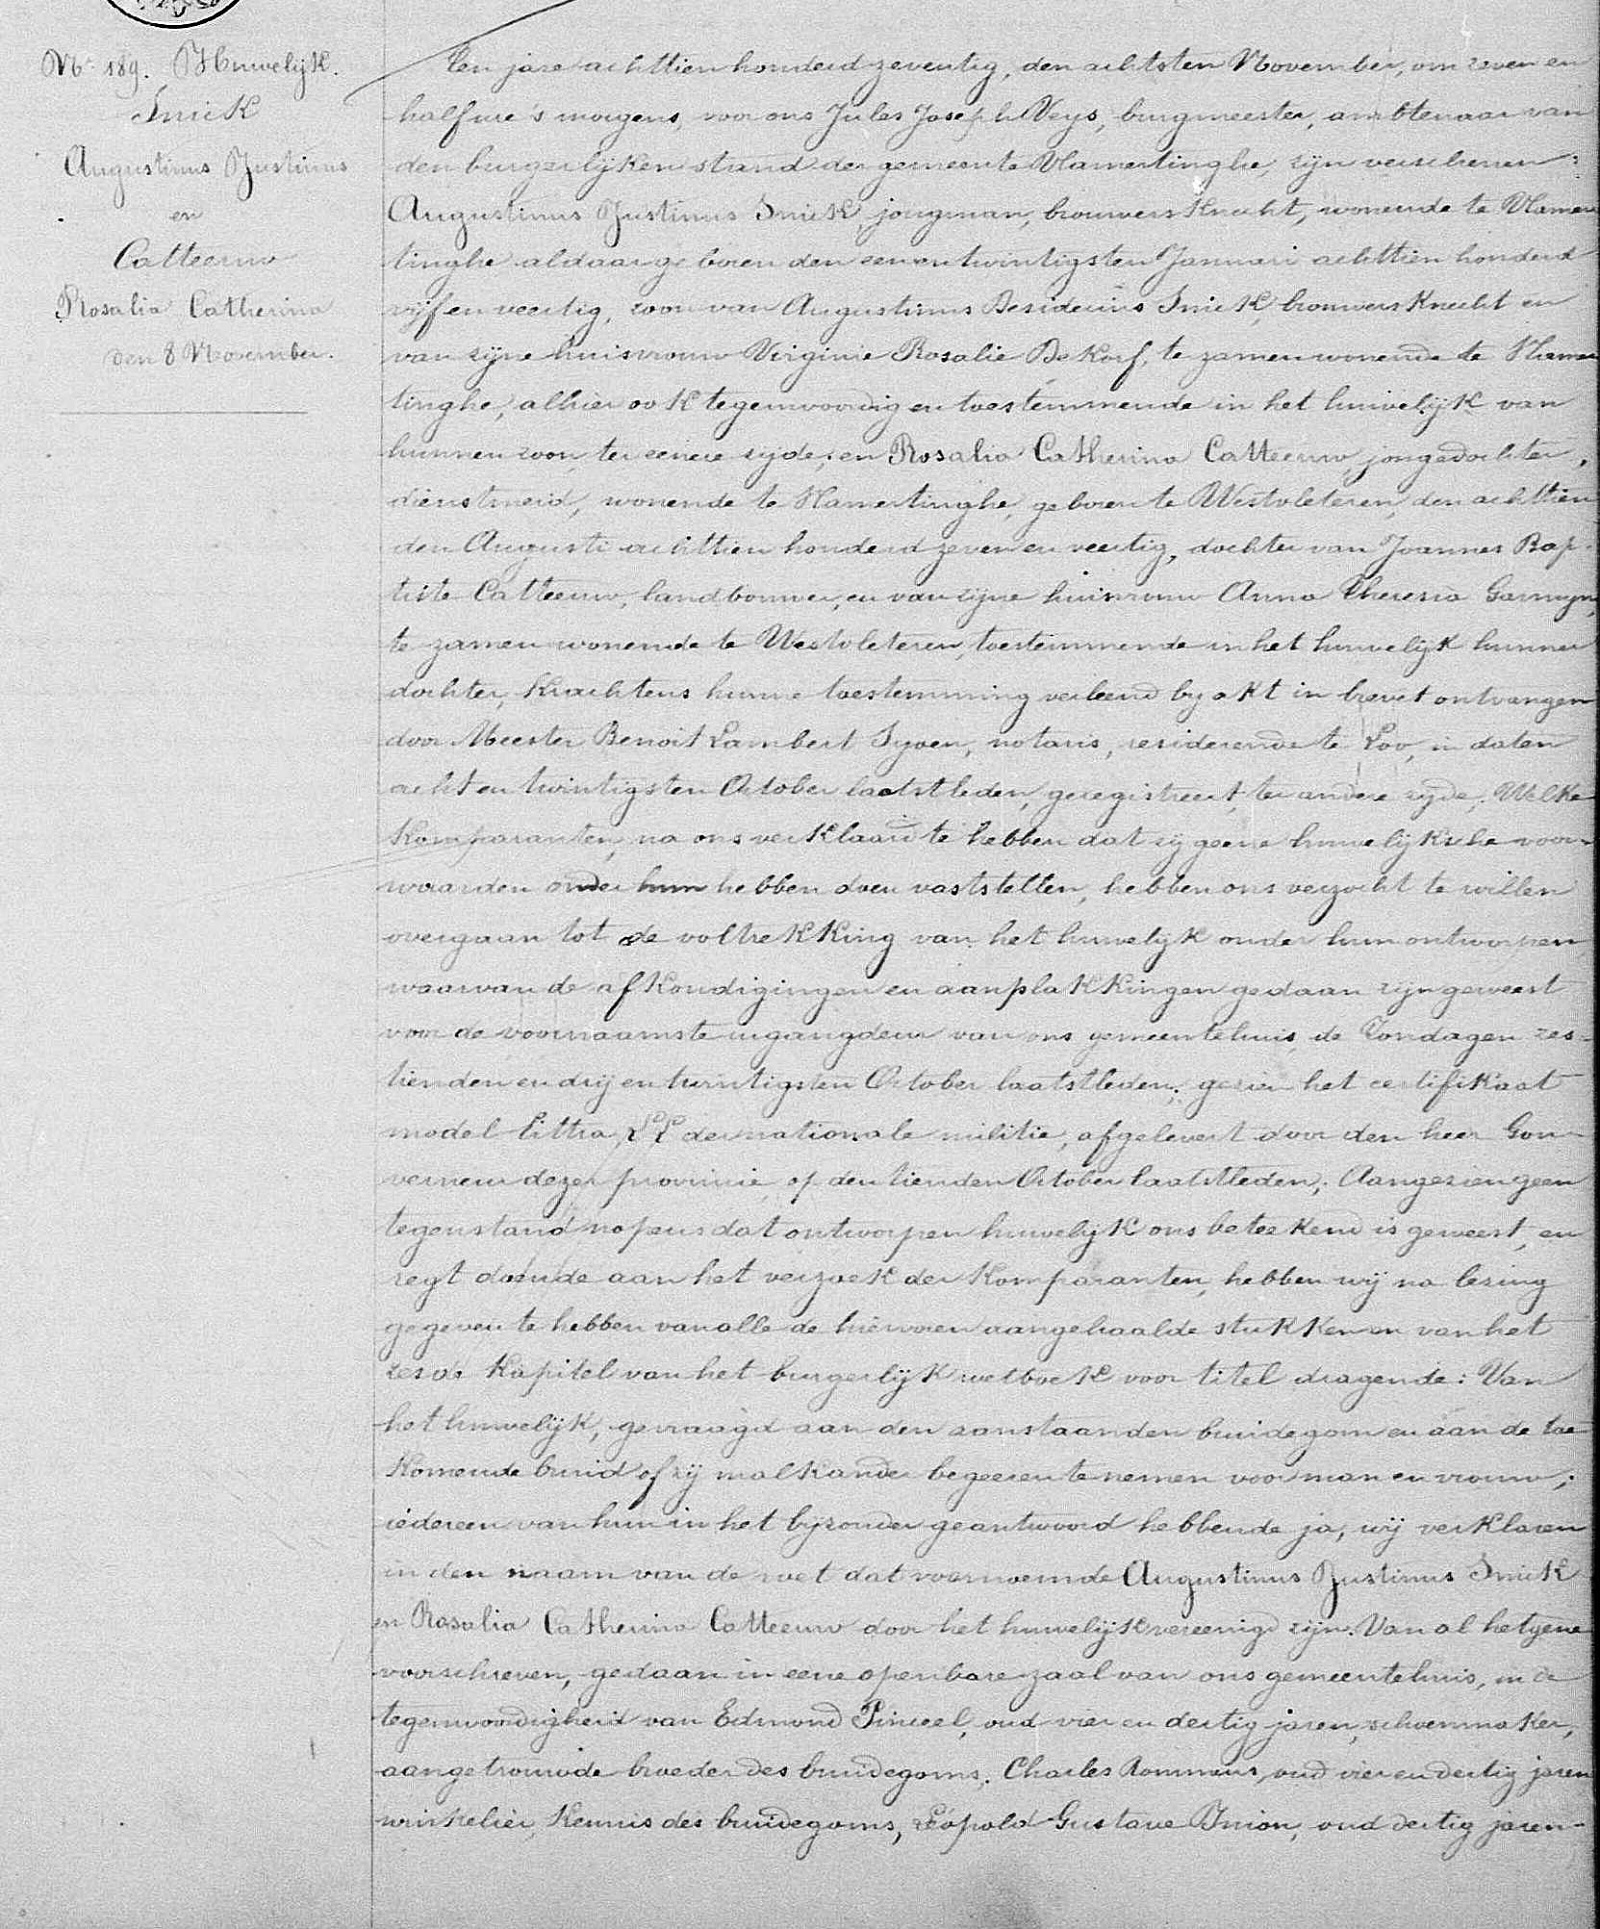 N.º 189. Huwelijk.
Sniek
Augustinus Justinus
en
Catteeuw
Rosalia Catherina
den 8 November.
Ten jare achttien honderd zeventig, den achtsten November, om zeven en
half ure 's morgens, voor ons Jules Joseph Veys, burgmeester, ambtenaar van
den burgerlijken stand der gemeente Vlamertinghe, zijn verschenen:
Augustinus Justinus Sniek, jongman, brouwers Knecht, wonende te Vlamer
tinghe aldaar geboren den eenentwintigsten Januari achttien honderd
vijf en veertig, zoon van Augustinus Desiderius Sniek, brouwers Knecht en
van zijne huisvrouw Virginie Rosalie De Korf, te zamen wonende te Vlamer
tinghe, alhier ook tegenwoordig en toestemmende in het huwelijk van
hunnen zoon, ter eenere zijde; en Rosalia Catherina Catteeuw, jongedochter,
dienstmeid, wonende te Vlamertinghe, geboren te Westvleteren, den achttien
den Augusti achttien honderd zeven en veertig, dochter van Joannes Bap-
tiste Catteeuw, landbouwer, en van zijne huisvrouw Anna Theresia Garmyn,
te zamen wonende te Westvleteren, toestemmende in het huwelijk hunner
dochter, Krachtens hunne toestemming verleend by akt in brevet ontvangen
door Meester Benoit Lambert Syoen, notaris, residerende te Loo, in daten
acht en twintigsten October laatstleden, geregistreert, ter andere zyde. Welke
Komparanten, na ons verklaard te hebben dat zij geene huwelijksche voor-
waarden onder hun hebben doen vaststellen, hebben ons verzocht te willen
overgaan tot de voltrekking van het huwelijk onder hun ontworpen
waarvan de afkondigingen en aanplakkingen gedaan zijn geweest
voor de voornaamste ingangdeur van ons gemeentehuis, de Zondagen zes-
tienden en drij en twintigsten October laatstleden; gezien het certifikaat
model Littra LL der nationale militie, afgelevert door den heer Gou-
verneur dezer provincie, op den tienden October laatstleden; Aangezien geen
tegenstand nopens dat ontworpen huwelijk ons beteekend is geweest, en
regt doende aan het verzoek der Komparanten, hebben wij na lezing
gegeven te hebben van alle de hiervoren aangehaalde stukken en van het
zesde Kapitel van het burgerlijk wetboek voor titel dragende: Van
het huwelijk, gevraagd aan den aanstaanden bruidegom en aan de toe
Komende bruid of zij malkander begeeren te nemen voor man en vrouw;
iedereen van hun in het bijzonder geantwoord hebbende ja, wij verklaren
in den naam van de wet dat voornoemde Augustinus Justinus Sniek
en Rosalia Catherina Catteeuw door het huwelijk vereenigd zijn. Van al hetgene
voorschreven, gedaan in eene openbare zaal van ons gemeentehuis, in de
tegenwoordigheid van Edmond Pinceel, oud vier en dertig jaren, schoenmaker,
aangetrouwde broeder des bruidegoms, Charles Rommens, oud vier en dertig jaren
winkelier, Kennis des bruidegoms, Léopold Gustave Inion, oud dertig jaren-